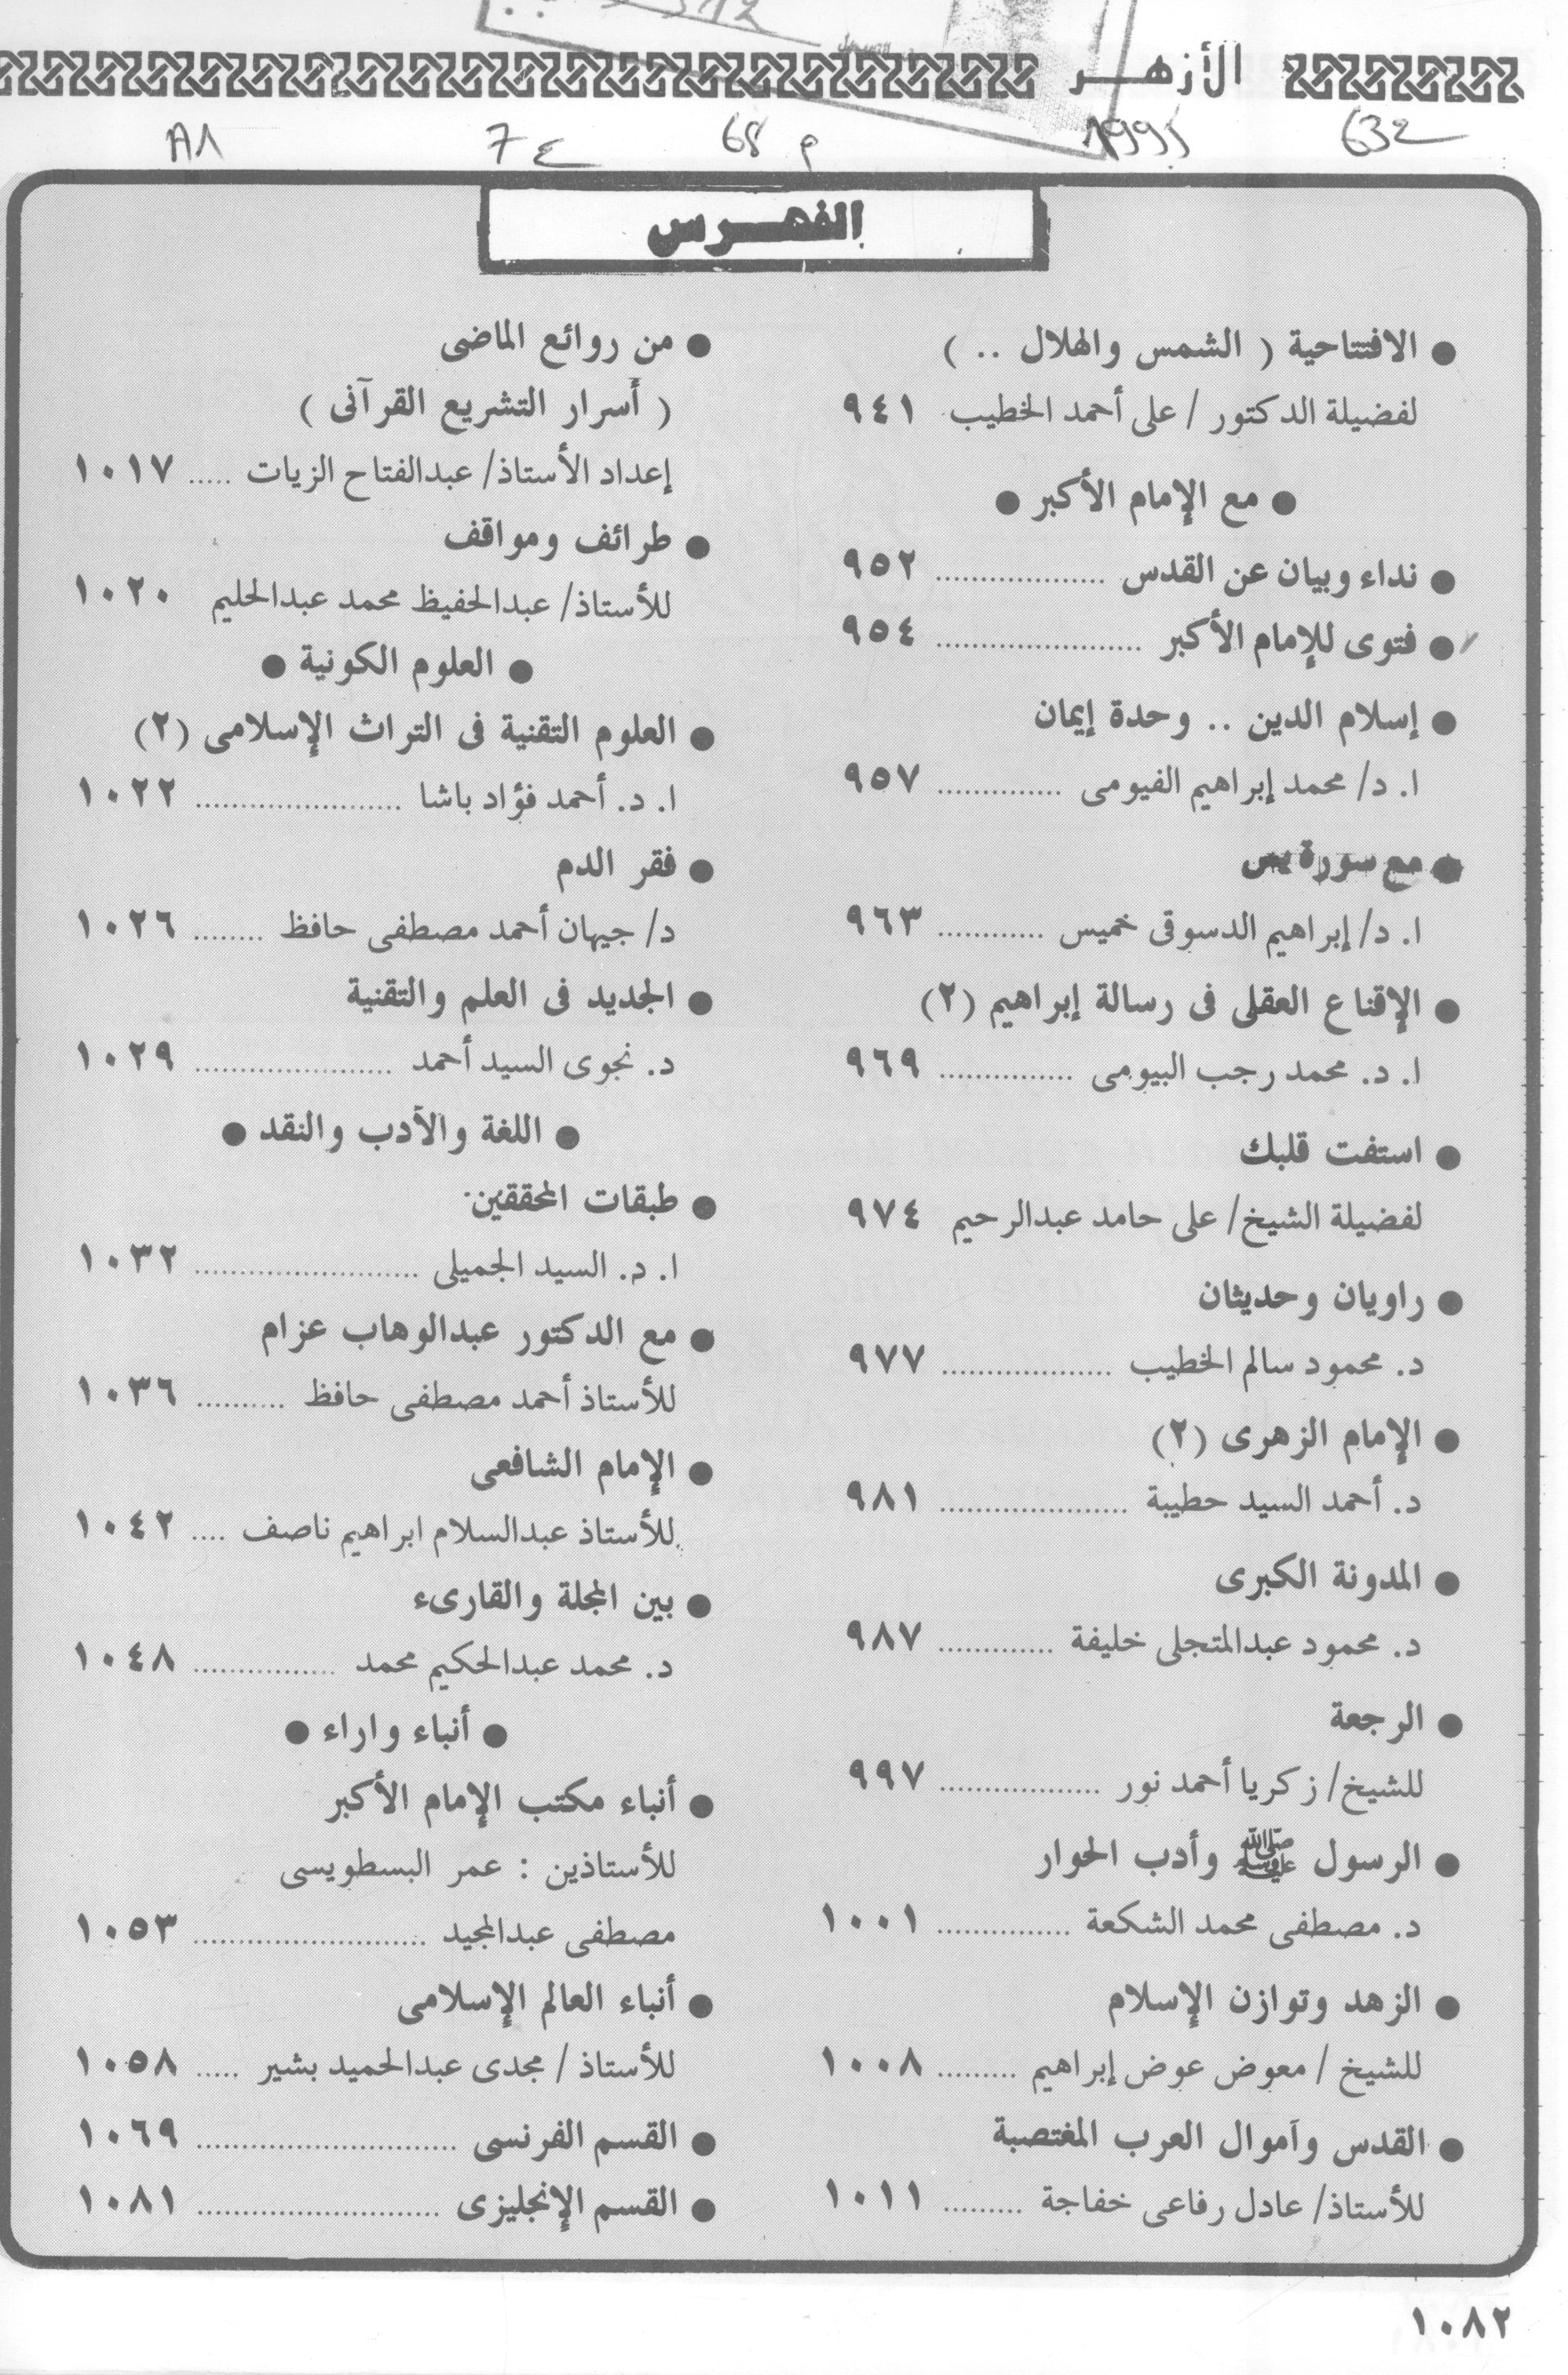 الأزهــر
632
1995
م 68
ع 7
A1
الفهــرس
● الافتتاحية ( الشمس والهلال .. )
لفضيلة الدكتور / على أحمد الخطيب ٩٤١
● مع الإمام الأكبر ●
● نداء وبيان عن القدس ................... ٩٥٢
● فتوى للإمام الأكبر ....................... ٩٥٤
● إسلام الدين .. وحدة إيمان
ا. د/ محمد إبراهيم الفيومى .............. ٩٥٧
● مع سورة يس
ا. د/ إبراهيم الدسوقى خميس ............ ٩٦٣
● الإقناع العقلى فى رسالة إبراهيم (٢)
ا. د. محمد رجب البيومى ............... ٩٦٩
● استفت قلبك
لفضيلة الشيخ/ على حامد عبدالرحيم ٩٧٤
● راويان وحديثان
د. محمود سالم الخطيب ................... ٩٧٧
● الإمام الزهرى (٢)
د. أحمد السيد حطيبة ..................... ٩٨١
● المدونة الكبرى
د. محمود عبدالمتجلى خليفة ............. ٩٨٧
● الرجعة
للشيخ/ زكريا أحمد نور .................. ٩٩٧
● الرسول ﷺ وأدب الحوار
د. مصطفى محمد الشكعة ............... ١٠٠١
● الزهد وتوازن الإسلام
للشيخ / معوض عوض إبراهيم ......... ١٠٠٨
● القدس وأموال العرب المغتصبة
للأستاذ/ عادل رفاعى خفاجة ......... ١٠١١
● من روائع الماضى
( أسرار التشريع القرآنى )
إعداد الأستاذ/ عبدالفتاح الزيات ..... ١٠١٧
● طرائف ومواقف
للأستاذ/ عبدالحفيظ محمد عبدالحليم ١٠٢٠
● العلوم الكونية ●
● العلوم التقنية فى التراث الإسلامى (٢)
ا. د. أحمد فؤاد باشا ....................... ١٠٢٢
● فقر الدم
د/ جيهان أحمد مصطفى حافظ ........ ١٠٢٦
● الجديد فى العلم والتقنية
د. نجوى السيد أحمد ...................... ١٠٢٩
● اللغة والأدب والنقد ●
● طبقات المحققين
ا. د. السيد الجميلى ......................... ١٠٣٢
● مع الدكتور عبدالوهاب عزام
للأستاذ أحمد مصطفى حافظ .......... ١٠٣٦
● الإمام الشافعى
للأستاذ عبدالسلام ابراهيم ناصف .... ١٠٤٢
● بين المجلة والقارىء
د. محمد عبدالحكيم محمد ................ ١٠٤٨
● أنباء واراء ●
● أنباء مكتب الإمام الأكبر
للأستاذين : عمر البسطويسى
مصطفى عبدالمجيد .......................... ١٠٥٣
● أنباء العالم الإسلامى
للأستاذ / مجدى عبدالحميد بشير ..... ١٠٥٨
● القسم الفرنسى ............................. ١٠٦٩
● القسم الإنجليزى ........................... ١٠٨١
١٠٨٢